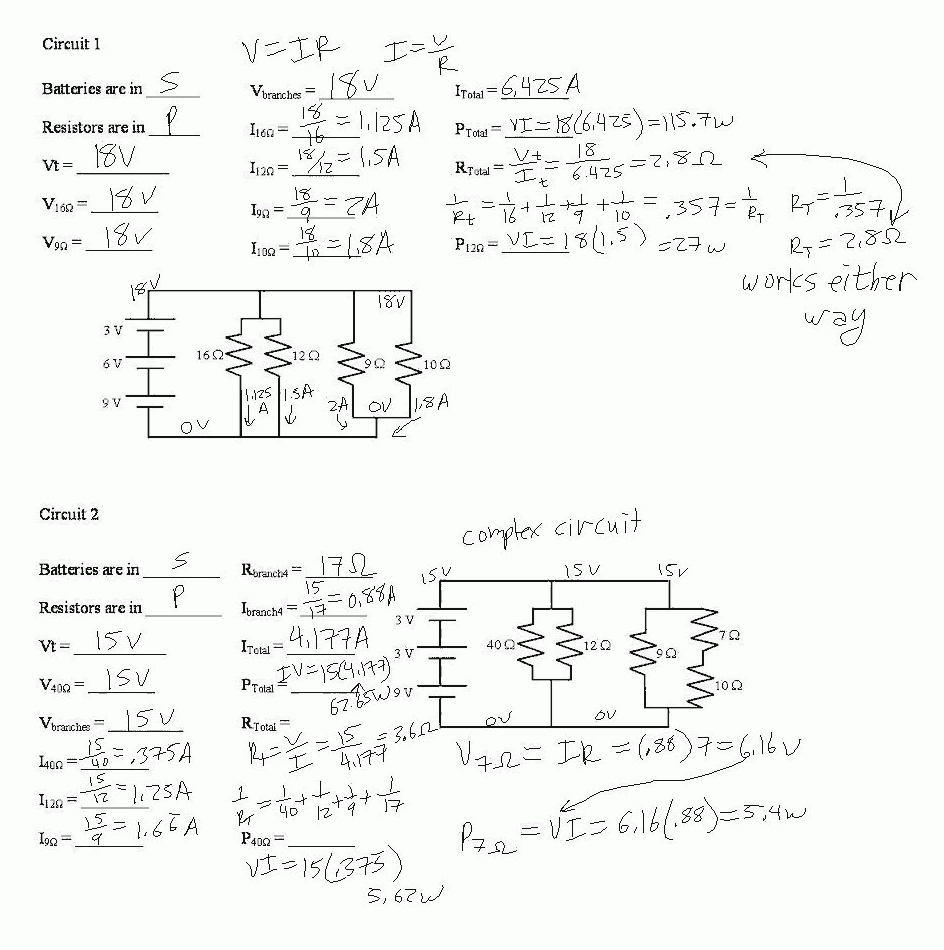 Circuit 1
V = IR I = V/R
Batteries are in S
Resistors are in P
Vt = 18V
V16Ω = 18V
V9Ω = 18V
Vbranches = 18V
I16Ω = 18/16 = 1.125A
I12Ω = 18/12 = 1.5A
I9Ω = 18/9 = 2A
I10Ω = 18/10 = 1.8A
ITotal = 6.425A
PTotal = VI = 18(6.425) = 115.7w
RTotal = Vt/It = 18/6.425 = 2.8Ω
1/Rt = 1/16 + 1/12 + 1/9 + 1/10 = .357 = 1/RT RT = 1/.357
P12Ω = VI = 18(1.5) = 27w RT = 2.8Ω
works either
way
18V 18V
3 V
6 V
9 V
16Ω 12Ω 9Ω 10Ω
1.125 A 1.5A 2A 0V 1.8A
0V
Circuit 2
complex circuit
Batteries are in S
Resistors are in P
Vt = 15V
V40Ω = 15V
Vbranches = 15V
I40Ω = 15/40 = .375A
I12Ω = 15/12 = 1.25A
I9Ω = 15/9 = 1.66A
Rbranch4 = 17Ω
Ibranch4 = 15/17 = 0.88A
ITotal = 4.177A
PTotal = IV = 15(4.177)
62.65W
RTotal =
RT = V/I = 15/4.177 = 3.6Ω
1/RT = 1/40 + 1/12 + 1/9 + 1/17
P40Ω =
VI = 15(.375)
5.62w
15V 15V 15V
3 V
3 V
9 V
40Ω 12Ω 9Ω 7Ω
10Ω
0V 0V
V7Ω = IR = (.88)7 = 6.16V
P7Ω = VI = 6.16(.88) = 5.4w